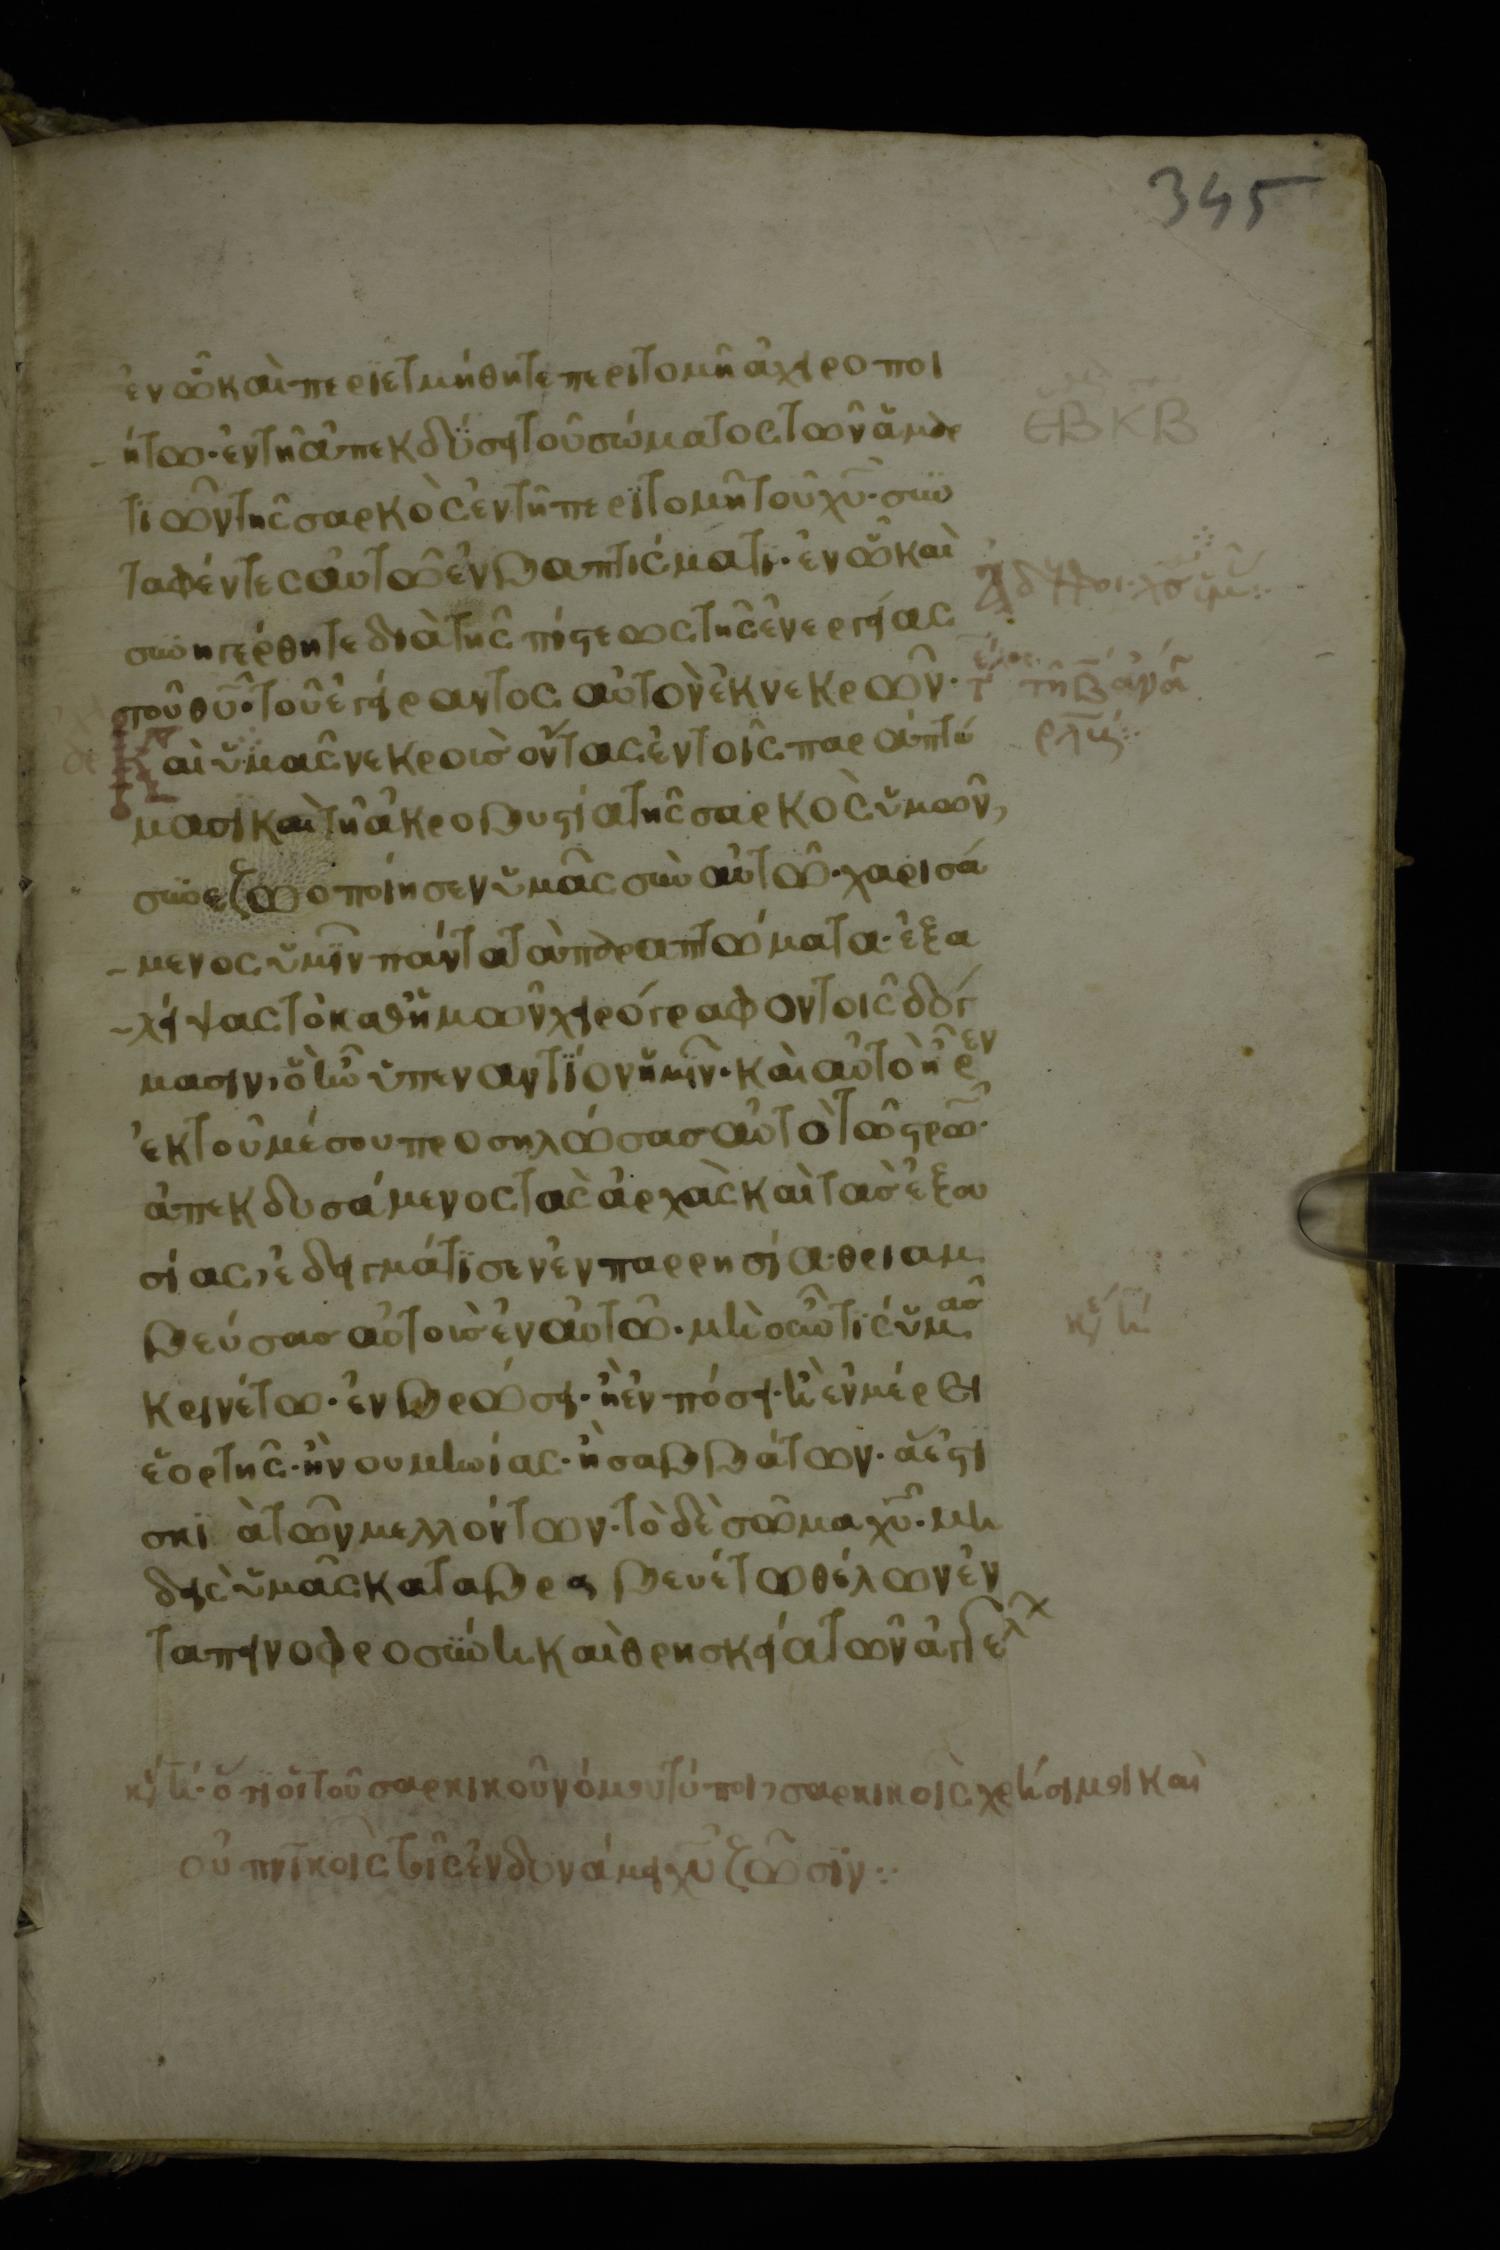 345
ἐν ᾧ καὶ περιετμήθητε περιτομῆ ἀχειροποι
ήτω· ἐν τῆ ἀπεκδύσει τοῦ σώματος τῶν ἁμαρ
τιῶν τῆς σαρκὸς ἐν τῆ περιτομῆ τοῦ χυ̅· συν
ταφέντες αὐτῶ ἐν βαπτίσματι· ἐν ᾧ καὶ
συνηγέρθητε διὰ τῆς πίστεως τῆς ἐνεργείας
τοῦ θυ̅· τοῦ ἐγείραντος αὐτὸν ἐκ νεκρῶν·
Καὶ ὑμᾶς νεκροὺς ὄντας ἐν τοῖς παραπτώ
μασι καὶ τῆ ἀκροβυστία τῆς σαρκὸς ὑμῶν,
συνεζωοποίησεν ὑμᾶς σὺν αὐτῶ· χαρισά
μενος ὑμῖν πάντα τὰ παραπτώματα· ἐξα
λείψας τὸ καθ' ἡμῶν χειρόγραφον τοῖς δόγ
μασιν, ὃ ἦν ὑπεναντίον ἡμῖν· καὶ αὐτὸ ἦρεν
ἐκ τοῦ μέσου προσηλώσας αὐτὸ τῶ στρω̅·
ἀπεκδυσάμενος τὰς ἀρχὰς καὶ τὰς ἐξου
σίας, ἐδειγμάτισεν ἐν παρρησία· θριαμ
βεύσας αὐτοὺς ἐν αὐτῶ· μὴ οὖν τις ὑμᾶς
κρινέτω· ἐν βρώσει· ἢ ἐν πόσει· ἢ ἐν μέρει
ἑορτῆς· ἢ νουμηνίας· ἢ σαββάτων· ἅ ἐστι
σκιὰ τῶν μελλόντων· τὸ δὲ σῶμα χυ̅· μη
δεὶς ὑμᾶς καταβραβευέτω θέλων ἐν
ταπεινοφροσύνη καὶ θρησκεία τῶν ἀγγέλων
εΒ κΒ
Ἀδελφοι·
τῆ Β
κε η
κε η· ὅτι οἱ τοῦ σαρκικοῦ νόμου τύποι, σαρκικοῖς χρήσιμοι καὶ
οὐ πνικοῖς τοῖς ἐν δυνάμει χυ̅ ζῶσιν